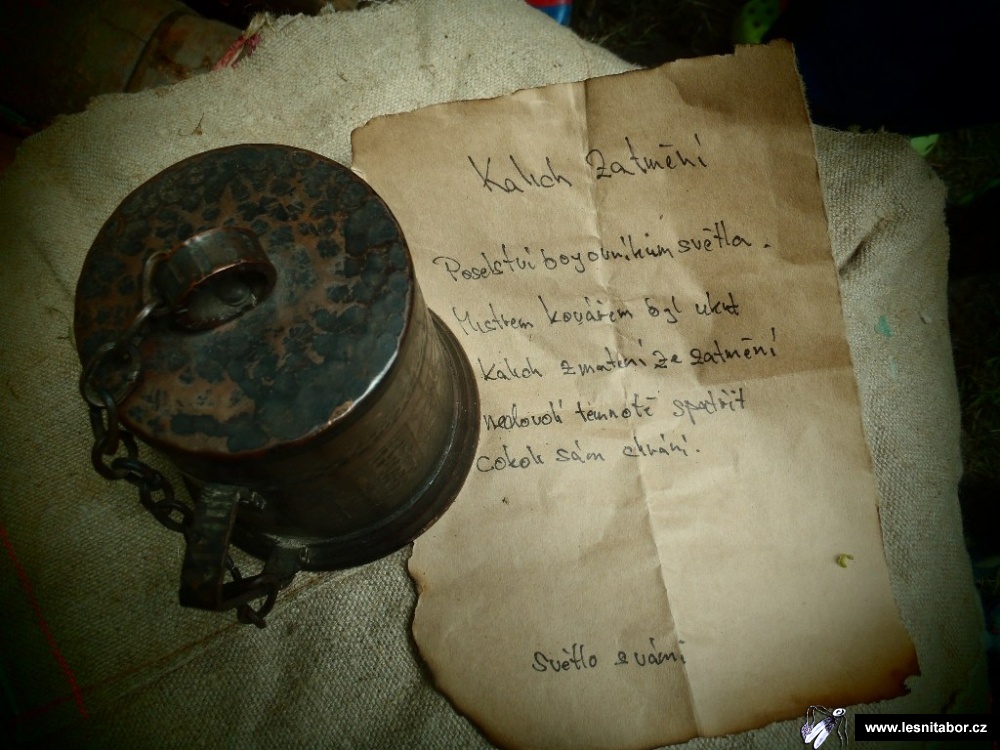 Kalich Zatmění
Poselství bojovníkům světla.
Mistrem kovářem byl ukut
kalich zmatení ze zatmění
nedovolí temnotě spatřit
cokoli sám chrání.
Světlo s vámi
www.lesnitabor.cz